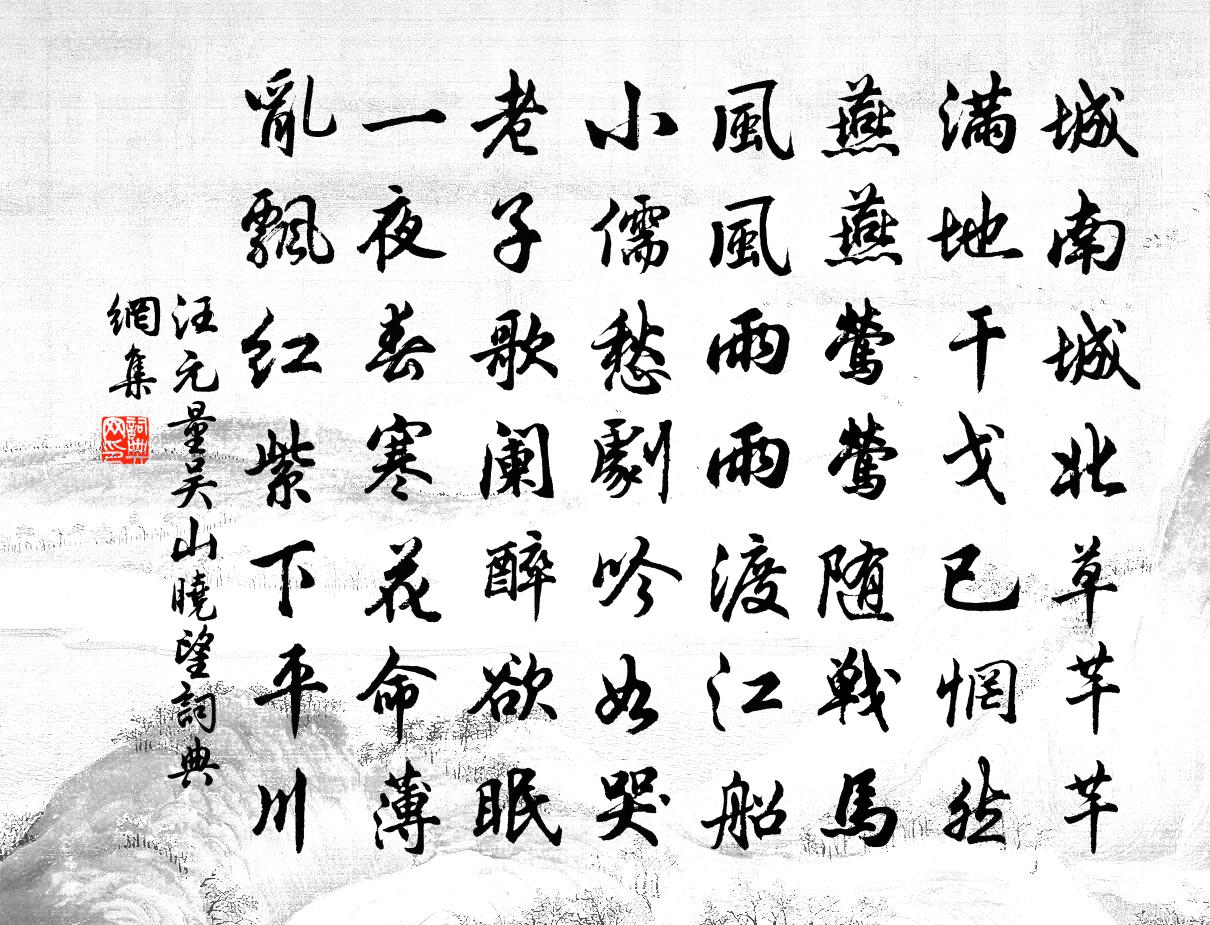 城南城北草芊芊
满地干戈已惘然
燕燕莺莺随戦馬
風風雨雨渡江船
小儒愁劇吟如哭
老子歌阑醉欲眠
一夜春寒花命薄
亂飄红紫下平川
汪元量吴山曉望詞典
網集
詞典網印